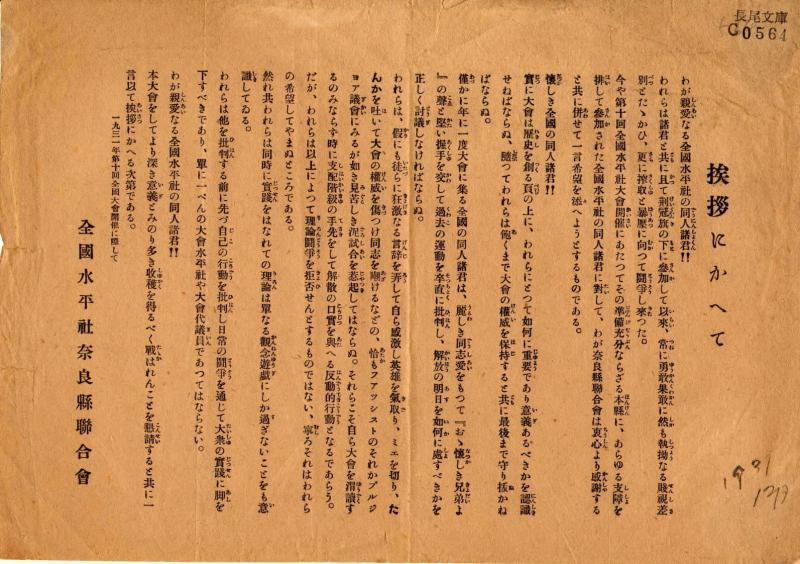 長尾文庫
C0564
挨拶にかへて
わが親愛なる全國水平社の同人諸君!!
われらは諸君と共に且て荊冠旗の下に參加して以來、常に勇敢果敢に然も執拗なる賤視差
別とたゝかひ、更に搾取と暴壓に向つて鬪爭し來つた。
今や第十回全國水平社大會開催にあたつてその準備充分ならざる本縣に、あらゆる支障を
排して參加された全國水平社の同人諸君に對して、わが奈良縣聯合會は衷心より感謝する
と共に併せて一言希望を添へようとするものである。
懷しき全國の同人諸君!!
實に大會は歷史を創る頁の上に、われらにとつて如何に重要であり意義あるべきかを認識
せねばならぬ、隨つてわれらは飽くまで大會の權威を保持すると共に最後まで守り拔かね
ばならぬ。
僅かに年に一度大會に集る全國の同人諸君は、麗しき同志愛をもつて『おゝ懷しき兄弟よ
』の聲と堅い握手を交して過去の運動を卒直に批判し、解放の明日を如何に處すべきかを
正しく討議しなければならぬ。
われらは、假にも徒らに狂激なる言辭を弄して自ら感激し英雄を氣取り、ミエを切り、た
んかを吐いて大會の權威を傷つけ同志を嘲けるなどの、恰もファッシストのそれかブルジ
ョア議會にみるが如き見苦しき泥試合を惹起してはならぬ。それらこそ自ら大會を冒瀆す
るのみならず時に支配階級の手先をして解散の口實を與へる反動的行動となるであらう。
だが、われらは以上によつて理論鬪爭を拒否せんとするものではない、寧ろそれはわれら
の希望してやまぬところである。
然れ共われらは同時に實踐をはなれての理論は單なる觀念遊戯にしか過ぎないことをも意
識してゐる。
われらは他を批判する前に先づ自己の行動を批判し日常の鬪爭を通じて大衆の實踐に脚を
下すべきであり、單に一ぺんの大會水平社や大會代議員であつてはならない。
わが親愛なる全國水平社の同人諸君!!
本大會をしてより深き意義とみのり多き收穫を得るべく戰はれんことを懇請すると共に一
言以て挨拶にかへる次第である。
一九三一年第十回全國大會開催に際して
全國水平社奈良縣聯合會
1931